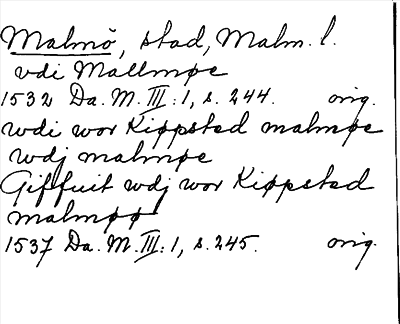 Malmö, stad, Malm. l.
vdi Mallmøe
1532 Da. M. III: 1, s. 244. orig.
wdi wor Kiøpsted malmøe
wdj malmøe
Giffuit wdj wor Kiøpstad
malmøø
1537 Da. M. III: 1, s. 245. orig.